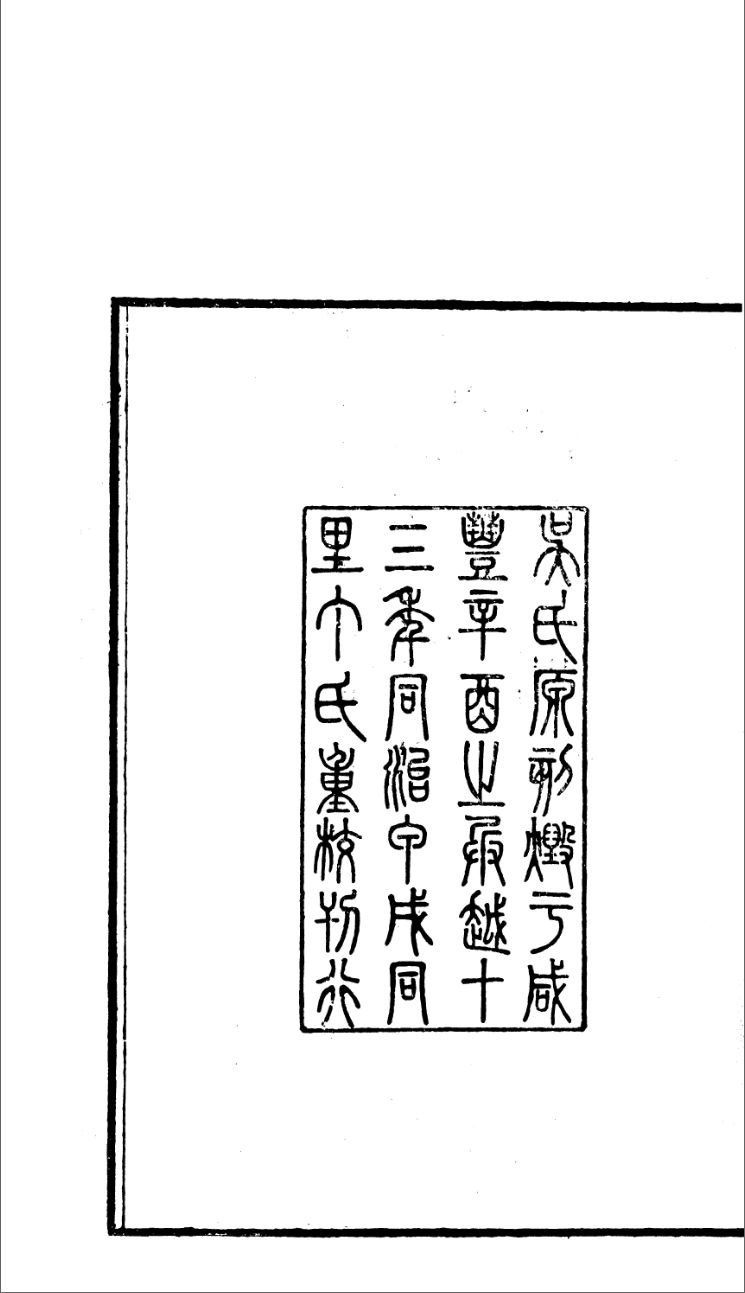 吳氏原刻燬于咸
豐辛酉之兵越十
三年同治甲戌同
里丁氏重校刊行